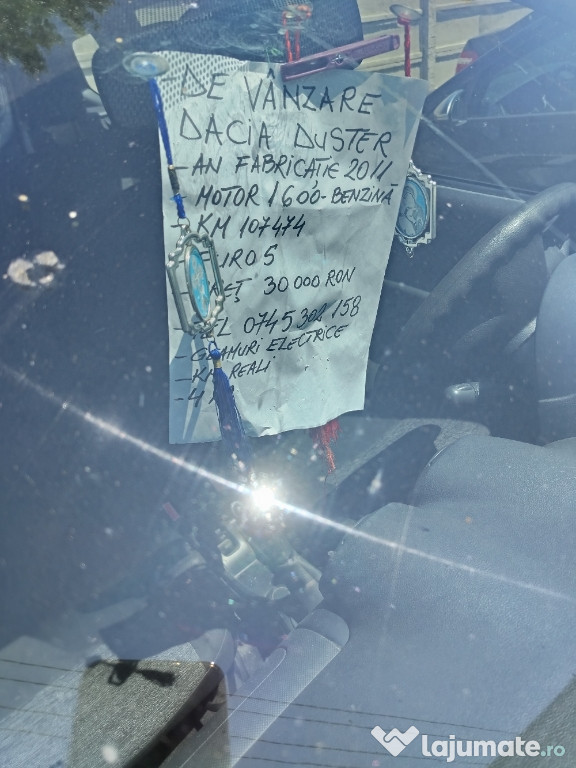 -DE VÂNZARE
DACIA DUSTER
-AN FABRICATIE 2011
-MOTOR 1600-BENZINĂ
-KM 107474
30000 RON
0745 302 158
-GEAMURI ELECTRICE
REALI
lajumate.ro